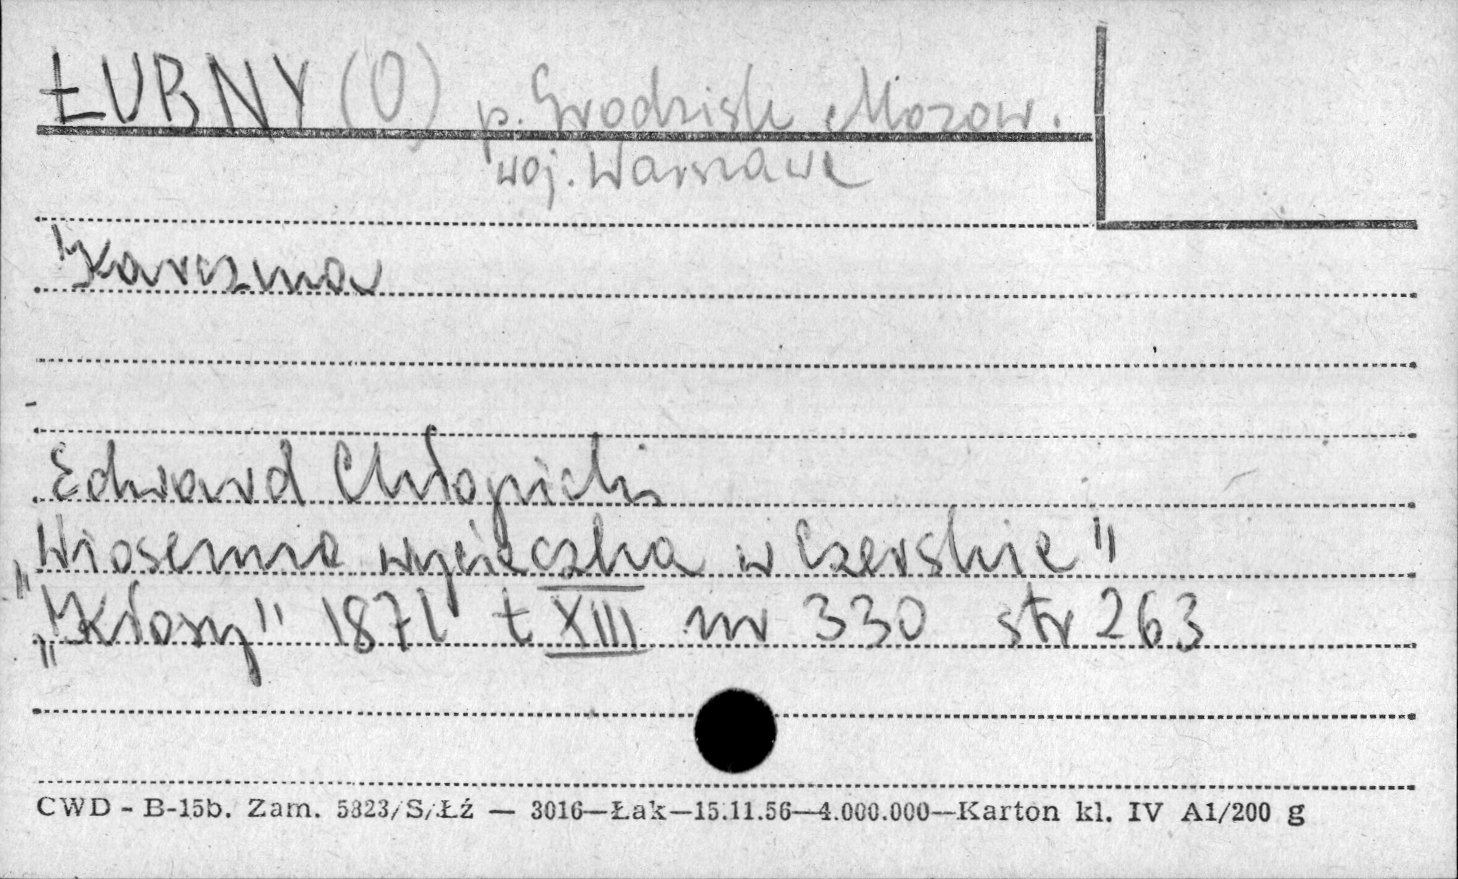 ŁUBNY (O) p. Grodzisk Mazow.
woj. Warszawa
Karczma
Edward Chłopicki
„Wiosenna wycieczka w Czerskie"
„Kłosy" 1871 t XIII nr 330 str 263
CWD - B-15b. Zam. 5823/S/Łź — 3016—Łak—15.11.56—4.000.000—Karton kl. IV A1/200 g